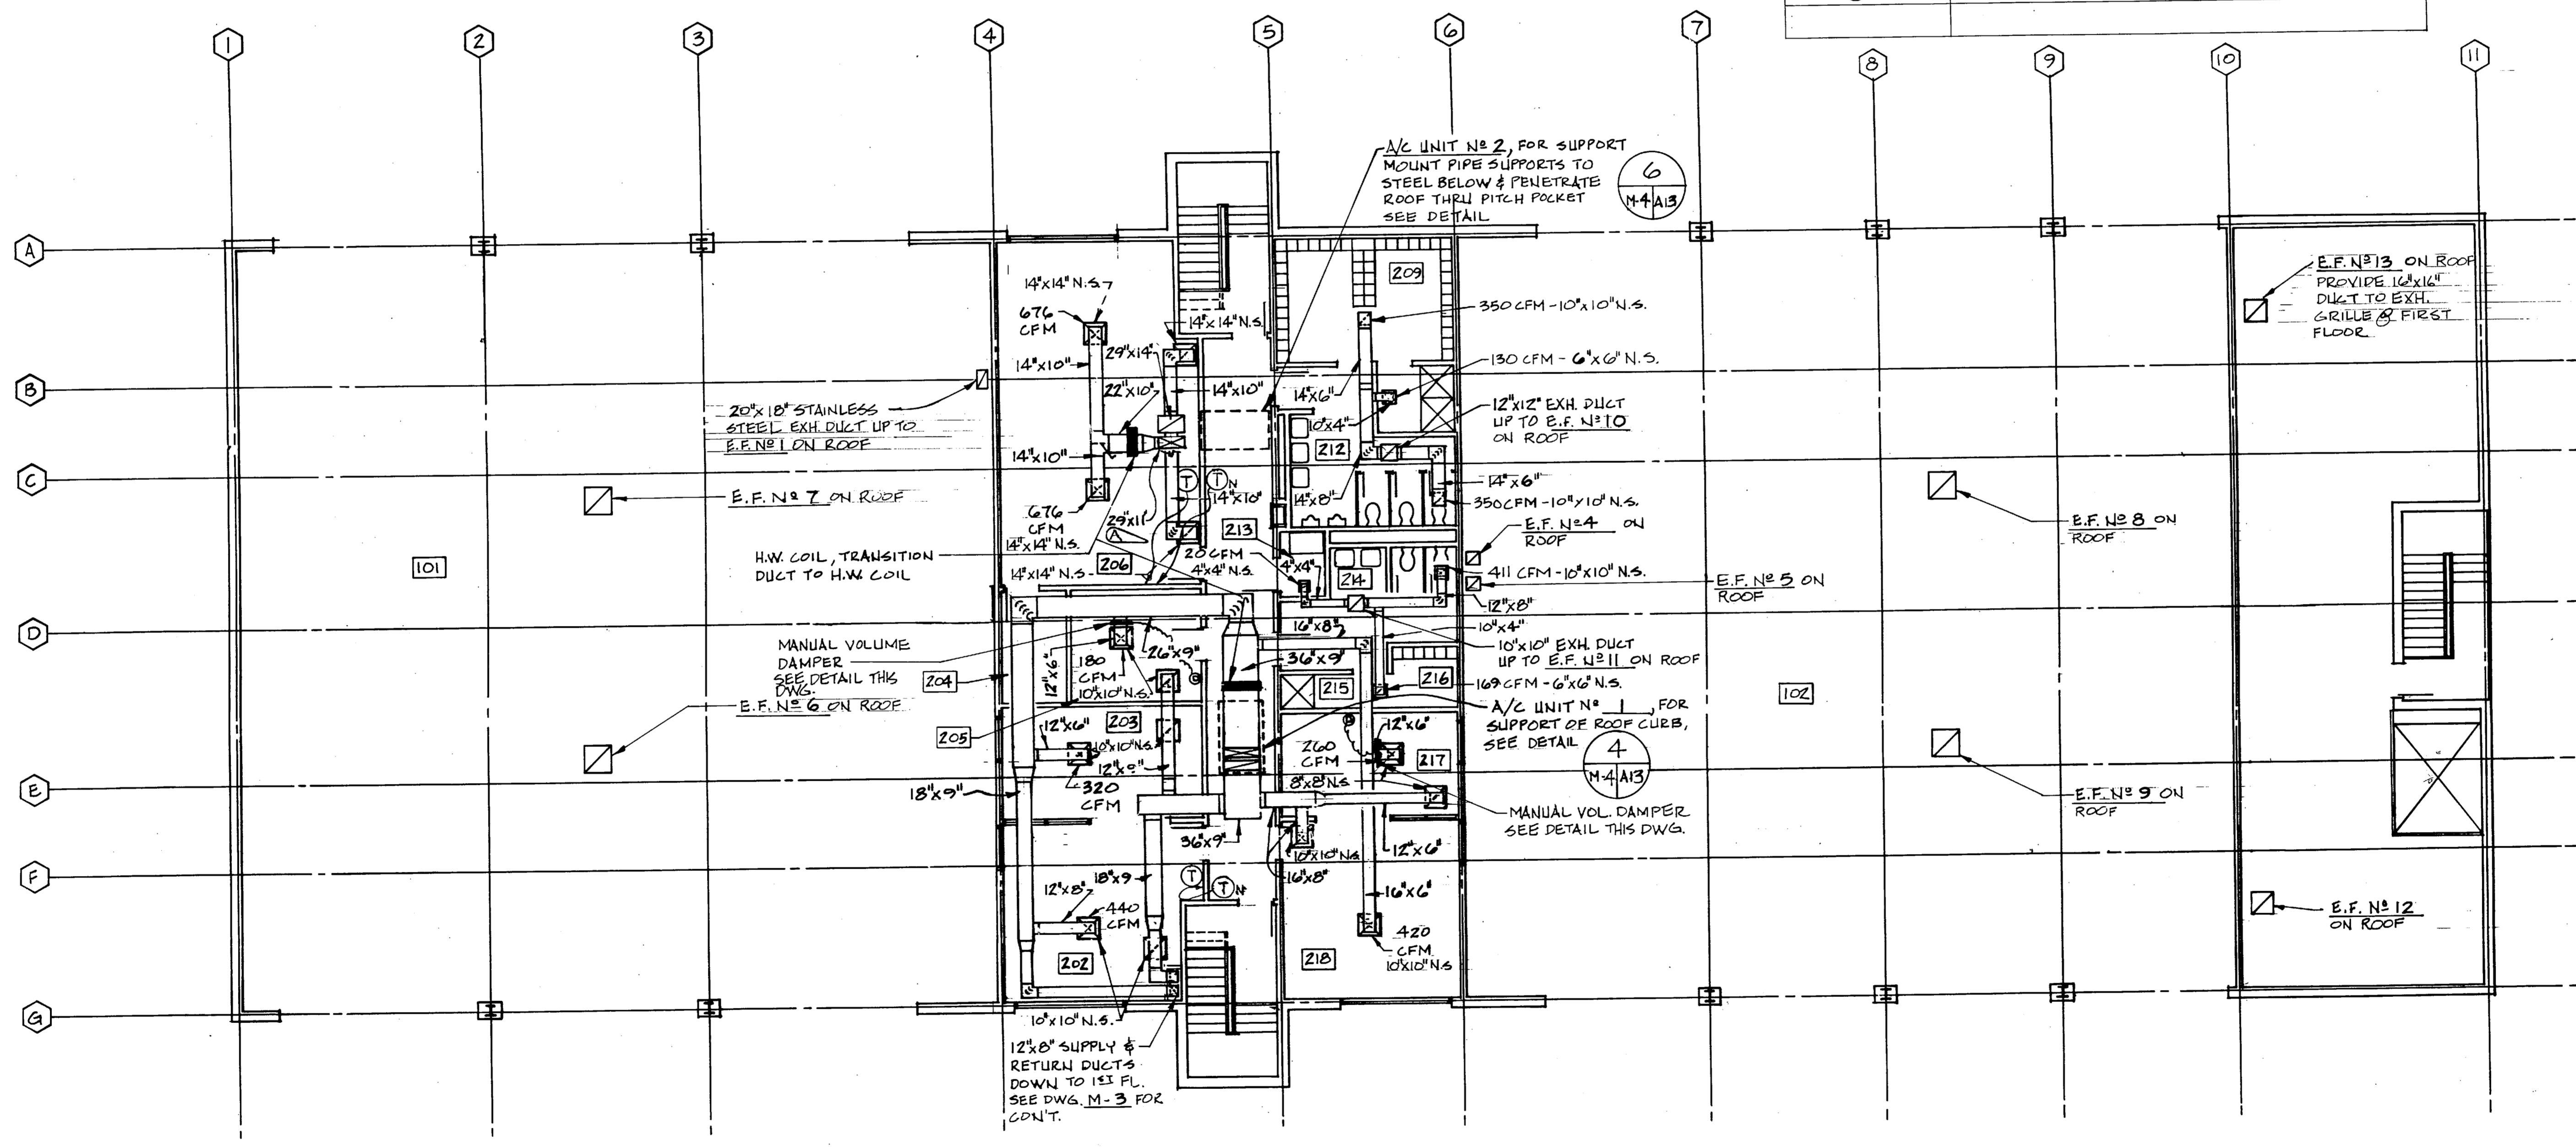 1
2
3
4
5
6
7
8
9
10
11
A
B
C
D
E
F
G
A/C UNIT Nº 2, FOR SUPPORT
MOUNT PIPE SUPPORTS TO
STEEL BELOW & PENETRATE
ROOF THRU PITCH POCKET
SEE DETAIL
6
M-4 A13
E.F. Nº 13 ON ROOF
PROVIDE 16"x16"
DUCT TO EXH.
GRILLE @ FIRST
FLOOR
14"x14" N.S.
676
CFM
14"x14" N.S.
29"x14"
14"x10"
22"x10"
14"x10"
209
350 CFM - 10"x10" N.S.
130 CFM - 6"x6" N.S.
14"x6"
10"x4"
212
12"x12" EXH. DUCT
UP TO E.F. Nº 10
ON ROOF
20"x18" STAINLESS
STEEL EXH. DUCT UP TO
E.F. Nº 1 ON ROOF
14"x10"
E.F. Nº 7 ON ROOF
T
T N
14"x10"
14"x8"
14"x6"
350 CFM - 10"x10" N.S.
676
CFM
14"x14" N.S.
29"x11"
A
213
E.F. Nº 4 ON
ROOF
E.F. Nº 8 ON
ROOF
H.W. COIL, TRANSITION
DUCT TO H.W. COIL
101
14"x14" N.S.
206
20 CFM
4"x4" N.S.
4"x4"
214
411 CFM - 10"x10" N.S.
E.F. Nº 5 ON
ROOF
12"x8"
10"x4"
16"x8"
10"x10" EXH. DUCT
UP TO E.F. Nº 11 ON ROOF
MANUAL VOLUME
DAMPER
SEE DETAIL THIS
DWG.
204
12"x6"
180
CFM
10"x10" N.S.
26"x9"
36"x9"
215
216
169 CFM - 6"x6" N.S.
102
E.F. Nº 6 ON ROOF
205
12"x6"
203
10"x10" N.S.
A/C UNIT Nº 1, FOR
SUPPORT OF ROOF CURB,
SEE DETAIL
4
M-4 A13
12"x6"
260
CFM
217
8"x8" N.S.
18"x9"
320
CFM
E.F. Nº 9 ON
ROOF
MANUAL VOL. DAMPER
SEE DETAIL THIS DWG.
36"x9"
10"x10" N.S.
12"x6"
12"x8"
18"x9
T
T N
16"x8"
16"x6"
440
CFM
202
420
CFM
10"x10" N.S
218
E.F. Nº 12
ON ROOF
10"x10" N.S.
12"x8" SUPPLY &
RETURN DUCTS
DOWN TO 1ST FL.
SEE DWG. M-3 FOR
CON'T.